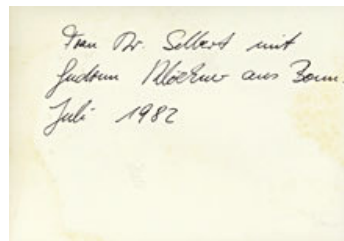 Frau Dr. Selbert mit
Gudrun Klöckner aus Bonn.
Juli 1982